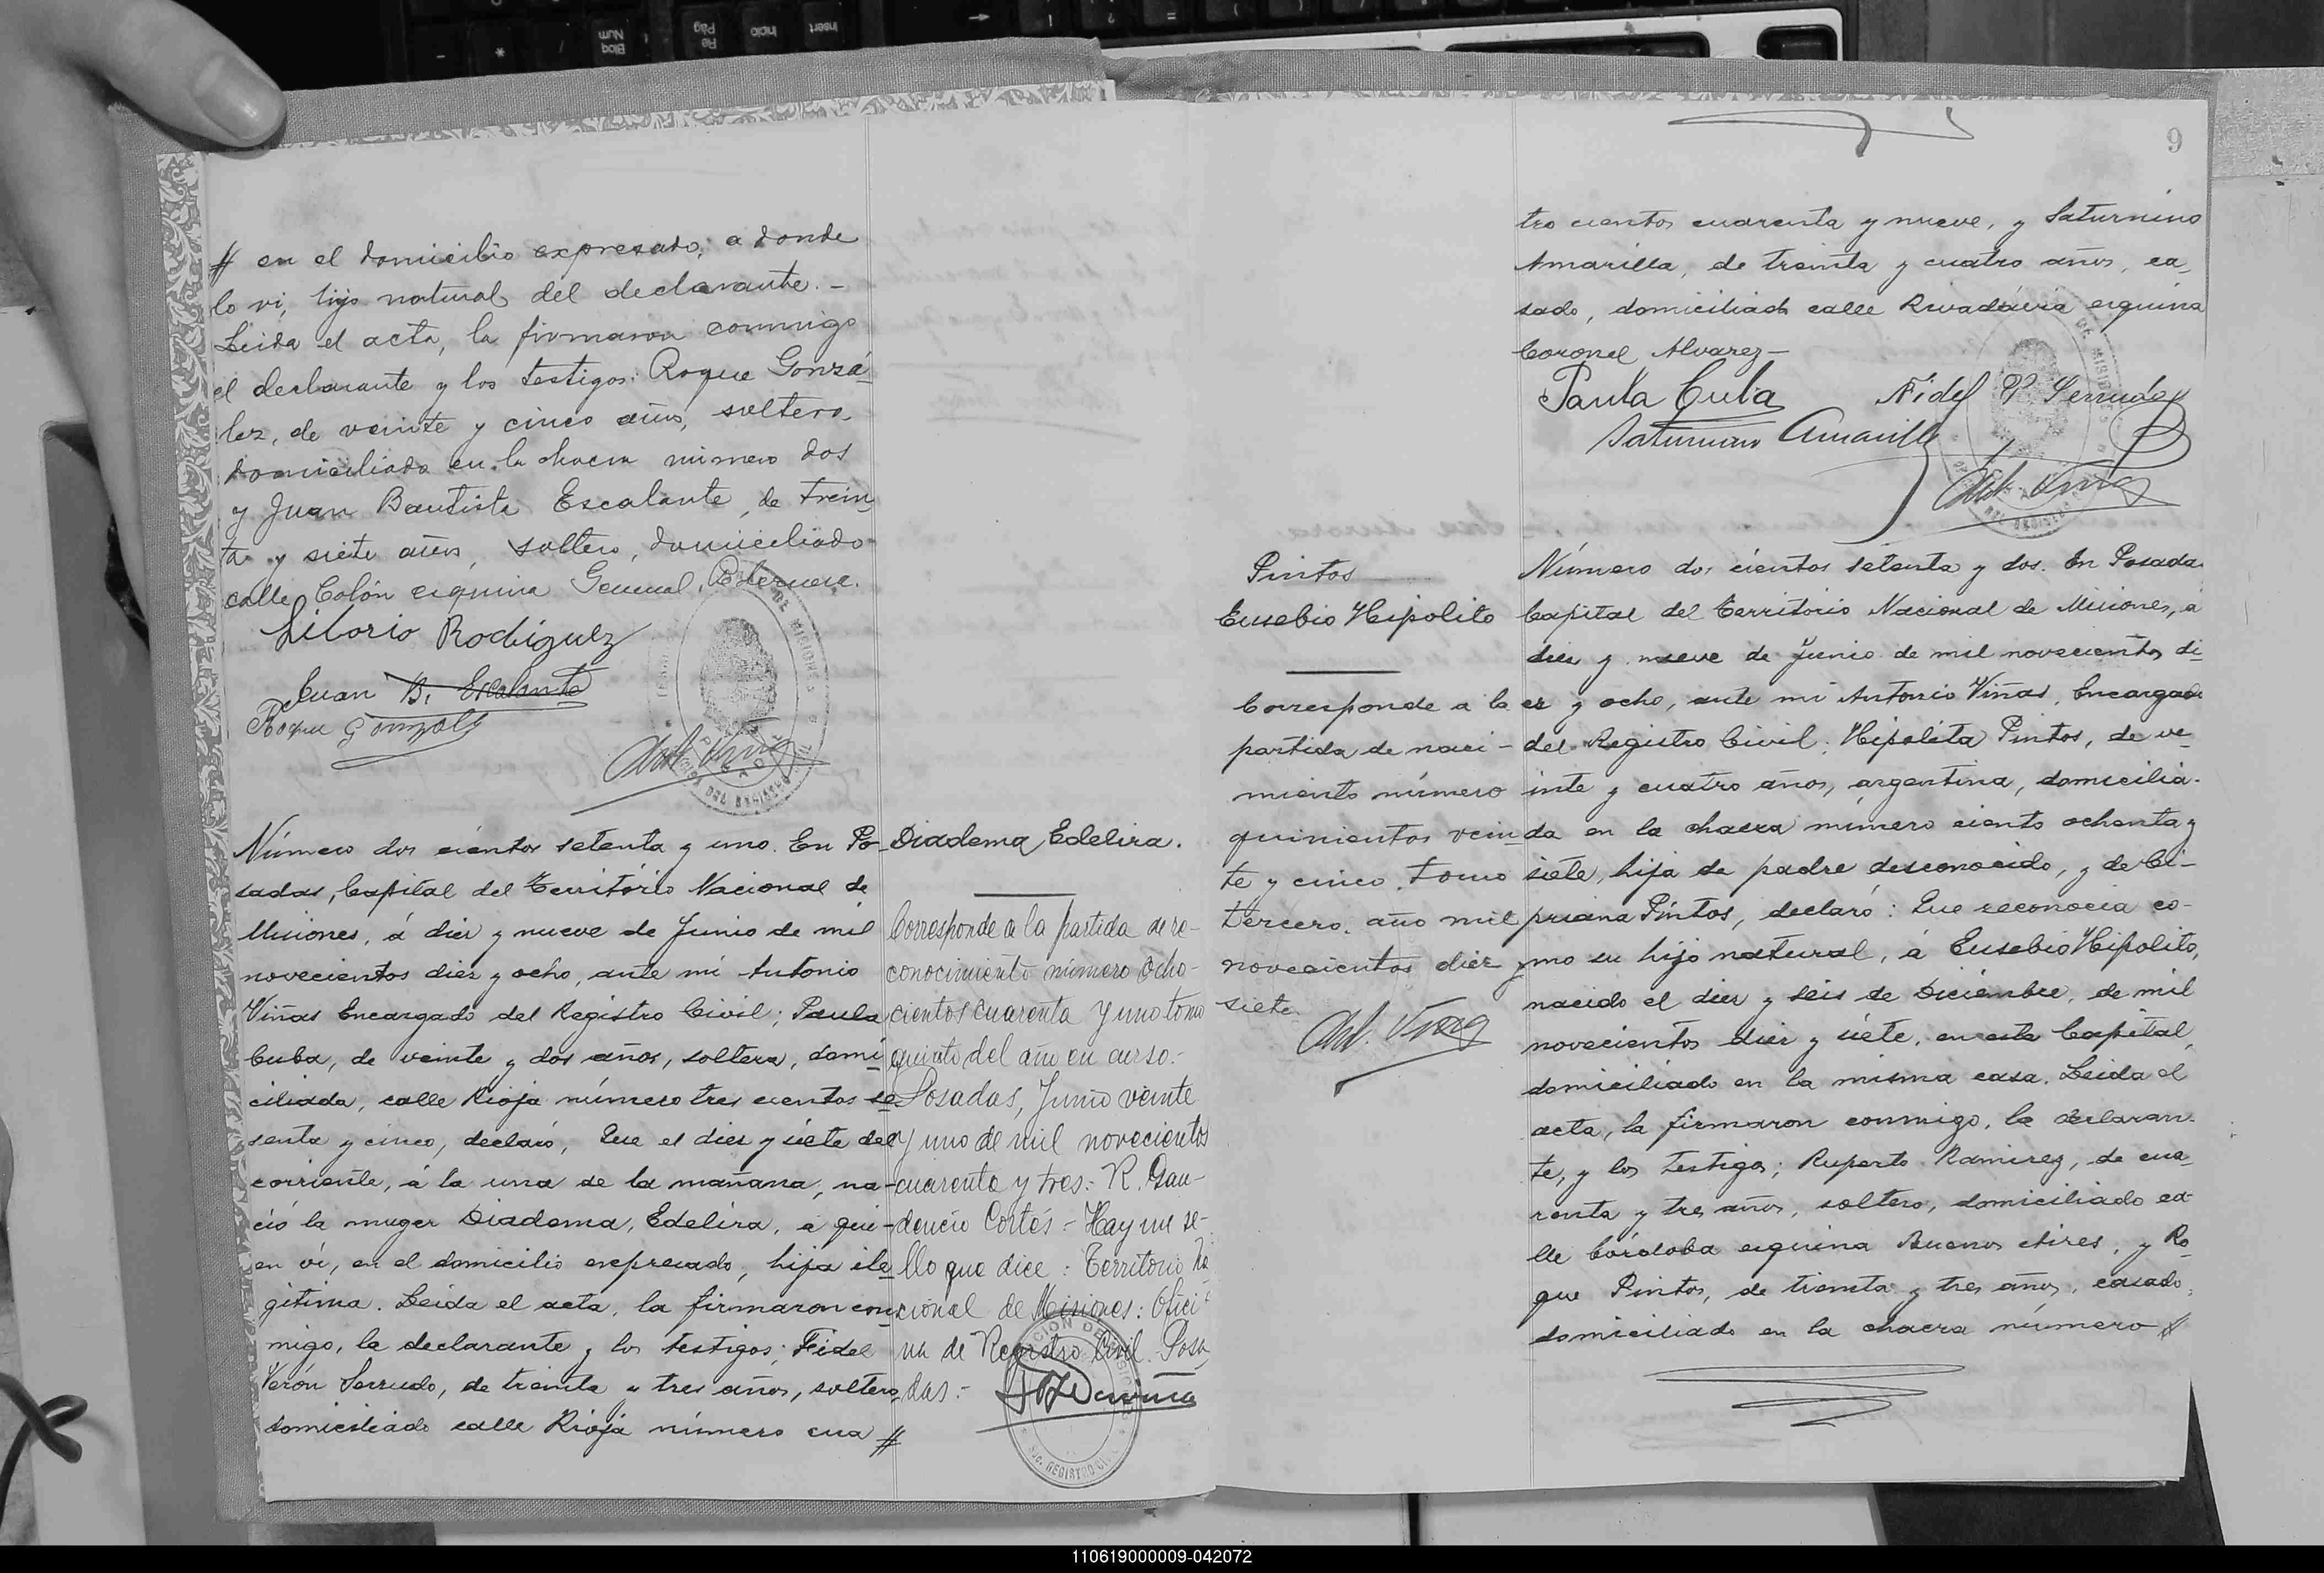 # en el domicilio expresado; a donde
lo ví, hijo natural del declarante.-
Leida el acta, la firmaron conmigo
el declarante y los testigos: Roque Gonzá-
lez, de veinte y cinco años, soltero
domiciliado en la chacra número dos
y Juan Bautista Escalante, de trein
ta y siete años, soltero, domiciliado
calle Colón esquina General
Litorio Rodríguez
Juan B. Escalante
Roque Gonzalez
Ant. Viñas
Número dos cientos setenta y uno. En Po-
sadas, Capital del Territorio Nacional de
Misiones, á diez y nueve de Junio de mil
novecientos diez y ocho, ante mí Antonio
Viñas Encargado del Registro Civil; Paula
Cuba, de veinte y dos años, soltera, domi
ciliada, calle Rioja número tres cientos se
senta y cinco, declaró, Que el diez y siete del
corriente, á la una de la mañana, na-
ció la muger Diadema, Edelira, a qui-
en ví, en el domicilio expresado, hija ile
gítima. Leida el acta, la firmaron con
migo, la declarante y los testigos; Fidel
Verón Serrudo, de treinta y tres años, soltero
domiciliado calle Rioja número cua #
Diadema, Edelira.
Corresponde a la partida de re-
conocimiento número ocho-
cientos cuarenta y uno tomo
quinto del año en curso.-
Posadas, Junio veinte
y uno de mil novecientos
cuarenta y tres:- R. Gau-
dencio Cortés - Hay un se-
llo que dice: Territorio Na
cional de Misiones: Ofici
na de Registro Civil. Posa
das:-
9
tro cientos cuarenta y nueve, y Saturnino
Amarilla, de treinta y cuatro años, ca,
sado, domiciliado calle Rivadavia esquina
Coronel Alvarez-
Paula Cuba
Fidel V. Serrudo
Saturnino Amarilla
Ant. Viñas
Pintos
Eusebio Hipolito
Corresponde a la
partida de naci-
miento número
quinientos vein
te y cinco, tomo
tercero, año mil
novecientos diez y
siete.
Ant. Viñas
Número dos cientos setenta y dos. En Posadas
Capital del Territorio Nacional de Misiones, á
diez y nueve de Junio de mil novecientos di-
ez y ocho, ante mí Antonio Viñas, Encargado
del Registro Civil; Hipolita Pintos, de ve
inte y cuatro años, argentina, domicilia-
da en la chacra número ciento ochenta y
siete, hija de padre desconocido, y de Ci-
priana Pintos, declaró: Que reconocia co-
mo su hijo natural, á Eusebio Hipolito,
nacido el diez y seis de Diciembre, de mil
novecientos diez y siete, en esta Capital,
domiciliado en la misma casa. Leida el
acta, la firmaron conmigo, la declaran-
te, y los testigos; Ruperto Ramirez, de cua
renta y tres años, soltero, domiciliado ca-
lle Córdoba esquina Buenos Aires, y Ro
que Pintos, de treinta y tres años, casado,
domiciliado en la chacra número #
110619000009-042072